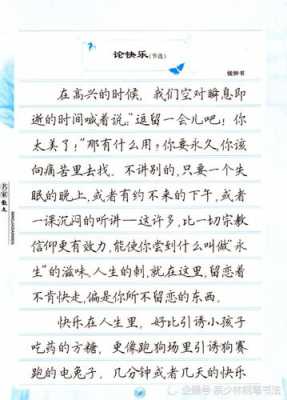 论快乐(节选)
钱钟书
在高兴的时候，我们空对瞬息即
逝的时间喊着说："逗留一会儿吧！你
太美了！"那有什么用？你要永久，你该
向痛苦里去找。不讲别的，只要一个失
眠的晚上，或者有约不来的下午，或者
一课沉闷的听讲——这许多，比一切宗教
信仰更有效力，能使你尝到什么叫做"永
生"的滋味。人生的刺，就在这里，留恋着
不肯快走，偏是你所不留恋的东西。
快乐在人生里，好比引诱小孩子
吃药的方糖，更像跑狗场里引诱狗赛
跑的电兔子。几分钟或者几天的快乐
名家散文